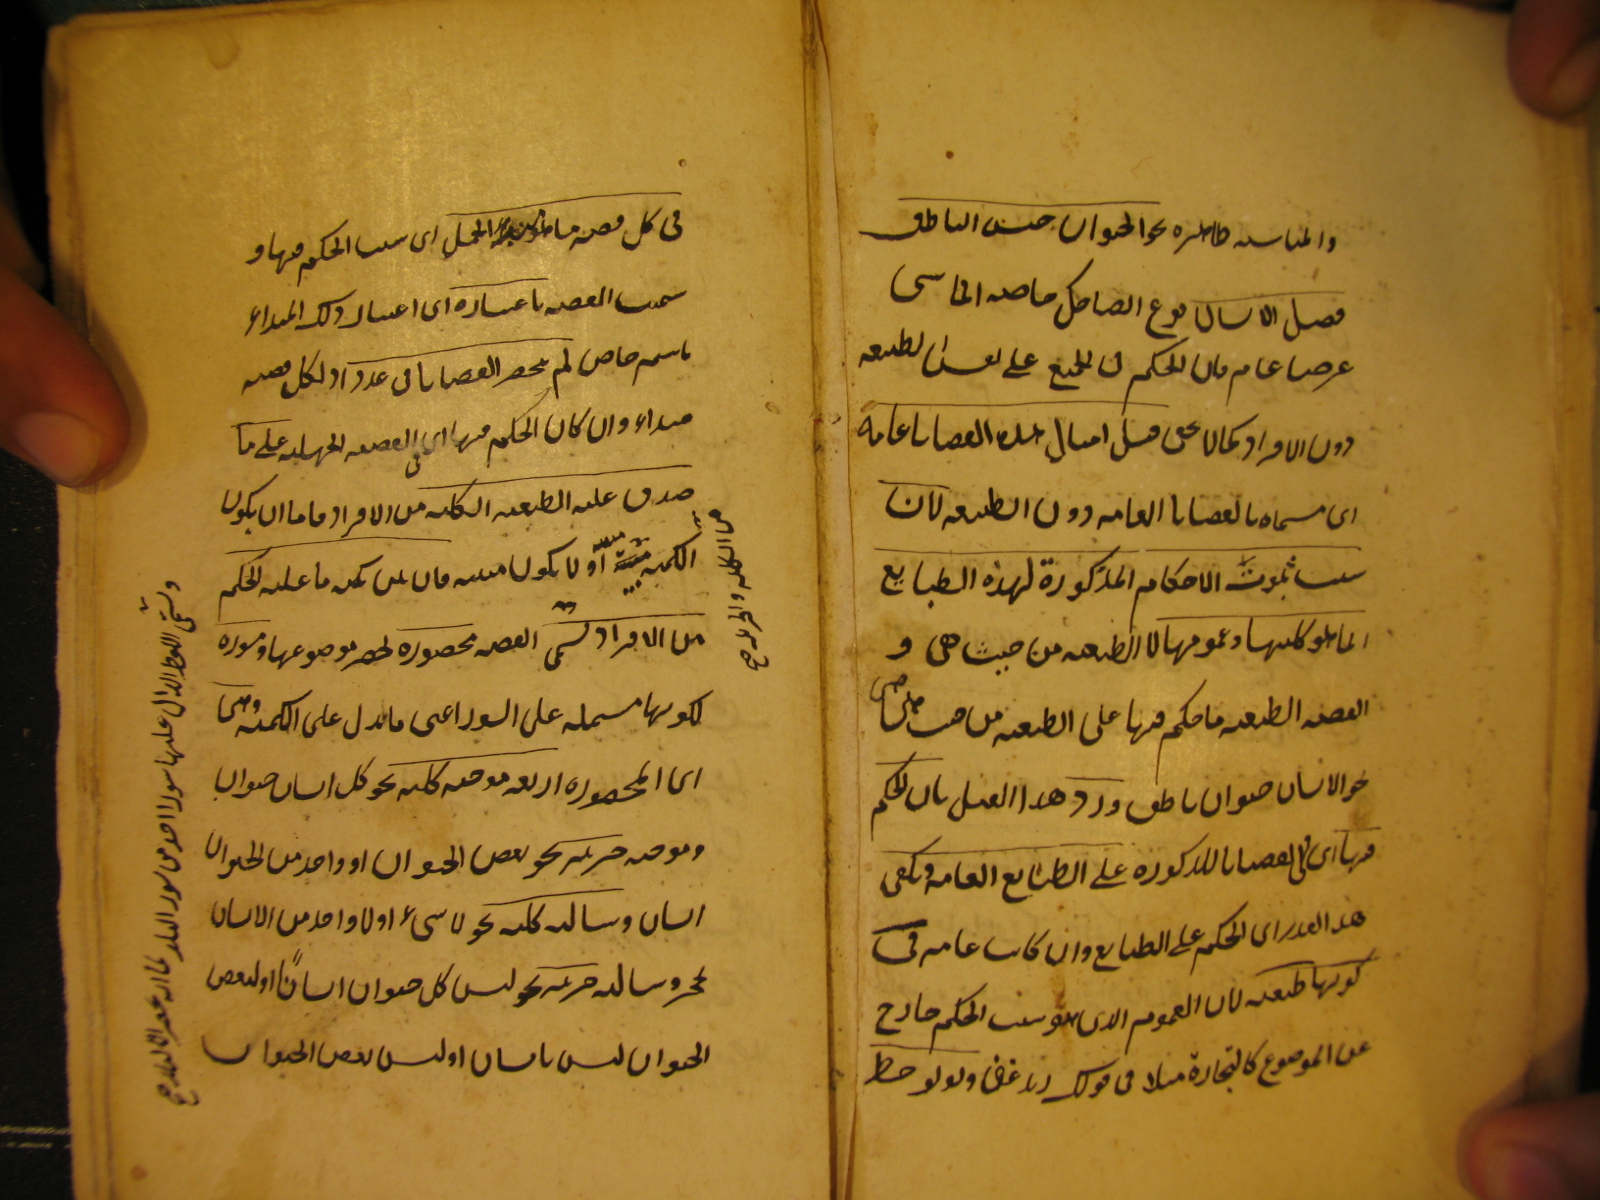 والمناسبة ظاهرة نحو الحيوان جنس الناطق
فصل الانسان نوع الضاحك خاصة الماشى
عرضا عام فان الحكم فى الجميع على نفس الطبيعة
دون الافراد كما لا يخفى قيل امثال هذه القضايا عامة
اى مسماة بالقضايا العامة دون الطبيعة لان
سبب ثبوت الاحكام المذكورة لهذه الطبايع
انما هو كليتها وعمومها لا الطبيعة من حيث هى و
القضية الطبيعة ما حكم فيها على الطبيعة من حيث هى هى
نحو الانسان حيوان ناطق ورد هذا القيل بان الحكم
فيها اى فى القضايا المذكورة على الطبايع العامة ويكفى
هذا القدر اى الحكم على الطبايع وان كانت عامة فى
كونها طبيعة لان العموم الذى هو سبب الحكم خارج
عن الموضوع كالتجارة مثلا فى قولك زيد غنى ولو لوحظ
فى كل قضية ما الحمل اى سبب الحكم فيها و
سميت القضية باعتباره اى اعتبار ذلك المبداء
باسم خاص لم تنحصر القضايا فى عدد اذ لكل قضية
مبداء وان كان الحكم فيها اى فى القضية الحملية على ما
صدق عليه الطبيعة الكلية من الافراد فاما ان يكون
الكمية مبينة او لا يكون مبينة فان بين كمية ما عليه الحكم
من الكلية والجزئية صح
من الافراد تسمى القضية محصورة لحصر موضوعها ومسورة
لكونها مشتملة على السور اعنى ما يدل على الكمية وهى
ويسمى اللفظ الدال عليها سورا اخذ من سور البلد كما انه يحصر الافراد صح
اى المحصورة اربعة موجبة كلية نحو كل انسان حيوان
وموجبة جزئية نحو بعض الحيوان او واحد من الحيوان
انسان وسالبة كلية نحو لا شىء او لا واحد من الانسان
بحجر وسالبة جزئية نحو ليس كل حيوان انسانا او بعض
الحيوان ليس بانسان او ليس بعض الحيوان